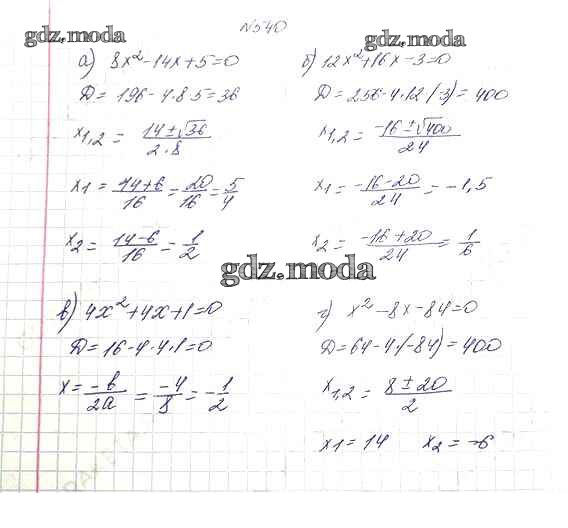 №540
gdz.moda
gdz.moda
а) 8x² - 14x + 5 = 0
D = 196 - 4·8·5 = 36
x1,2 = (14 ± √36)/(2·8)
x1 = (14 + 6)/16 = 20/16 = 5/4
x2 = (14 - 6)/16 = 1/2
б) 12x² + 16x - 3 = 0
D = 256 - 4·12(-3) = 400
x1,2 = (-16 ± √400)/24
x1 = (-16 - 20)/24 = -1,5
x2 = (-16 + 20)/24 = 1/6
gdz.moda
в) 4x² + 4x + 1 = 0
D = 16 - 4·4·1 = 0
x = -b/2a = -4/8 = -1/2
г) x² - 8x - 84 = 0
D = 64 - 4·(-84) = 400
x1,2 = (8 ± 20)/2
x1 = 14 x2 = -6